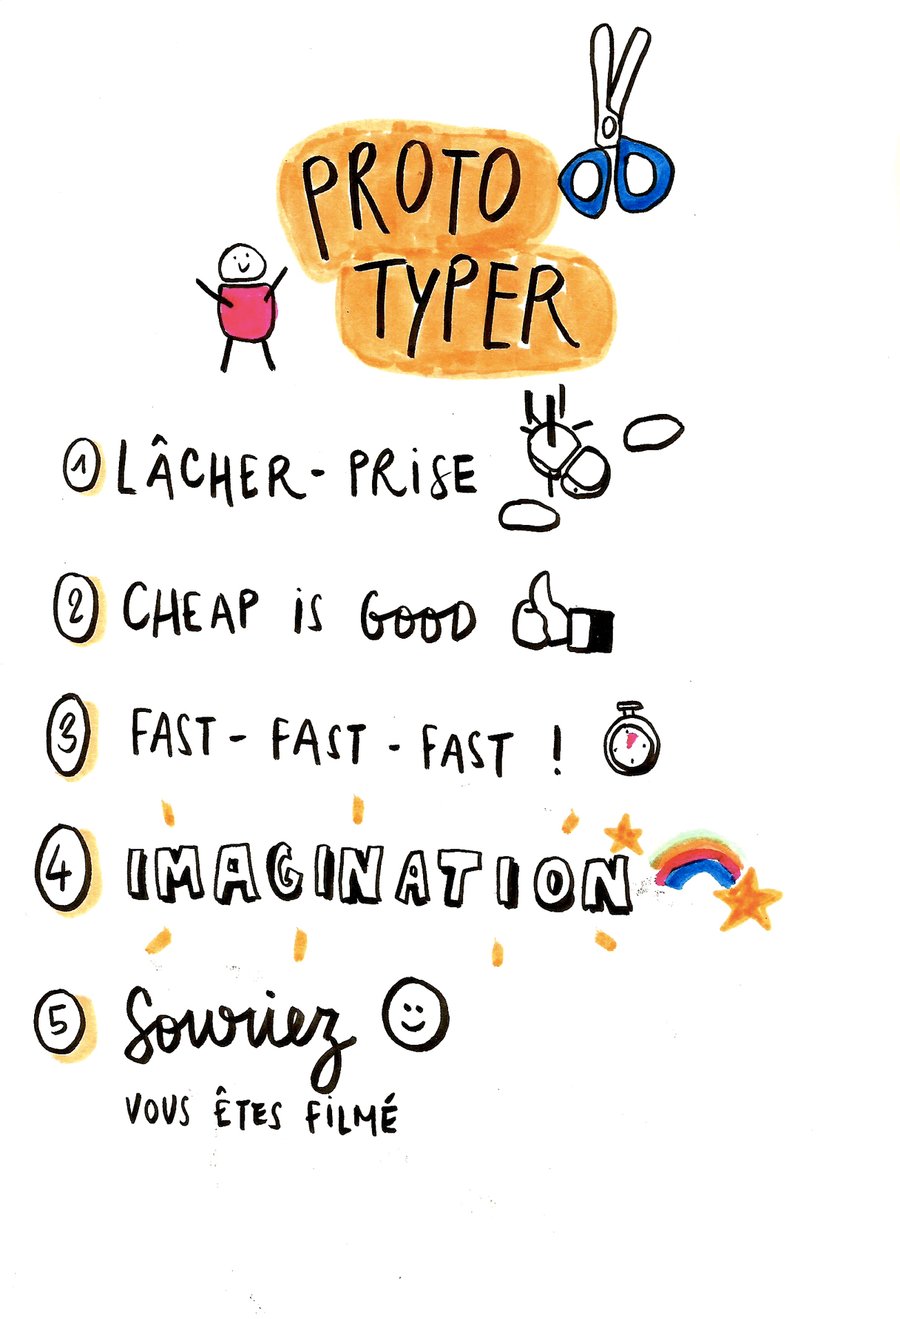 PROTO
TYPER
1 LÂCHER-PRISE
2 CHEAP is GOOD
3 FAST-FAST-FAST !
4 IMAGINATION
5 Souriez
VOUS ÊTES FiLMÉ